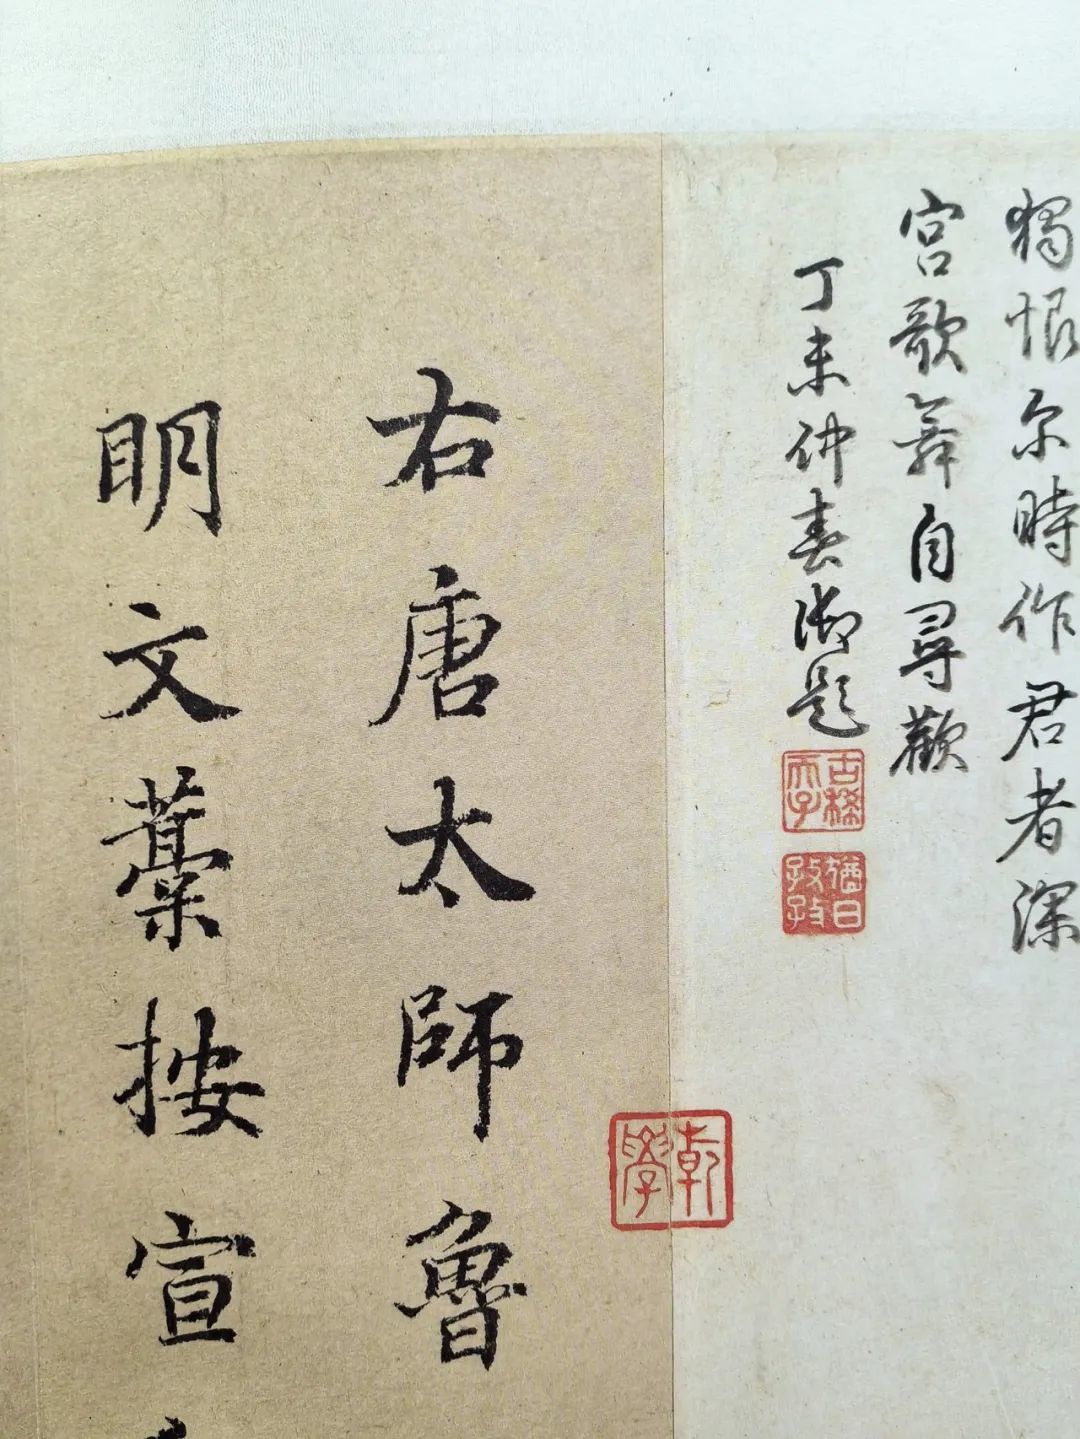 獨恨尔時作君者深
宮歌舞自尋歡
丁未仲春御題
古稀天子
猶日孜孜
乾學
右唐太師魯
明文藁按宣